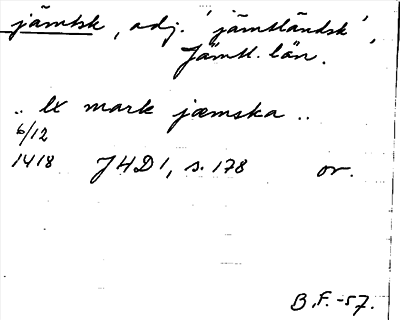 jämtsk, adj. 'jämtländsk',
Jämtl. län.
.. lx mark jæmska ..
6/12
1418 JHD 1, s. 178 or.
B.F. -57.